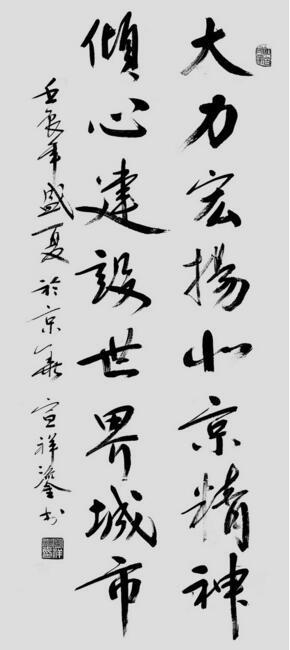 大力宏揚北京精神
傾心建設世界城市
壬辰年盛夏於京華宣祥鎏书